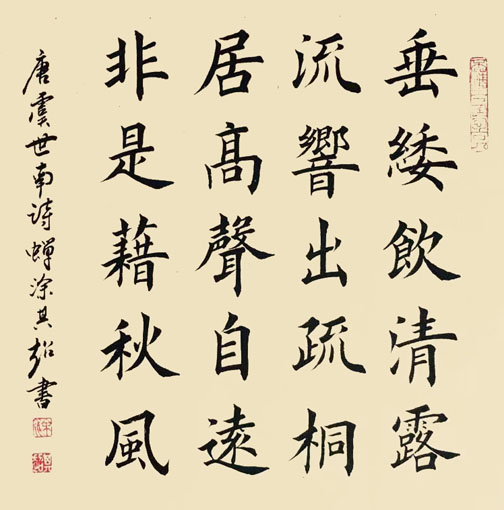 垂緌飲清露
流響出疏桐
居高聲自遠
非是藉秋風
唐虞世南詩蟬涂其超書